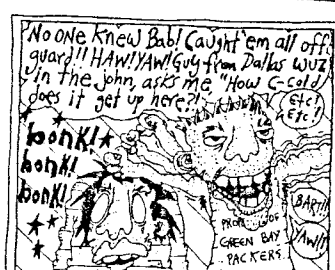 No one knew Bab! Caught 'em all off
guard!! HAW! YAW! Guy from Dallas wuz
in the john, asks me, "How C-cold
does it get up here?!
Etc!
Etc!
bonk!
bonk!
bonk!
BART!!
YAW!!
GREEN BAY
PACKERS